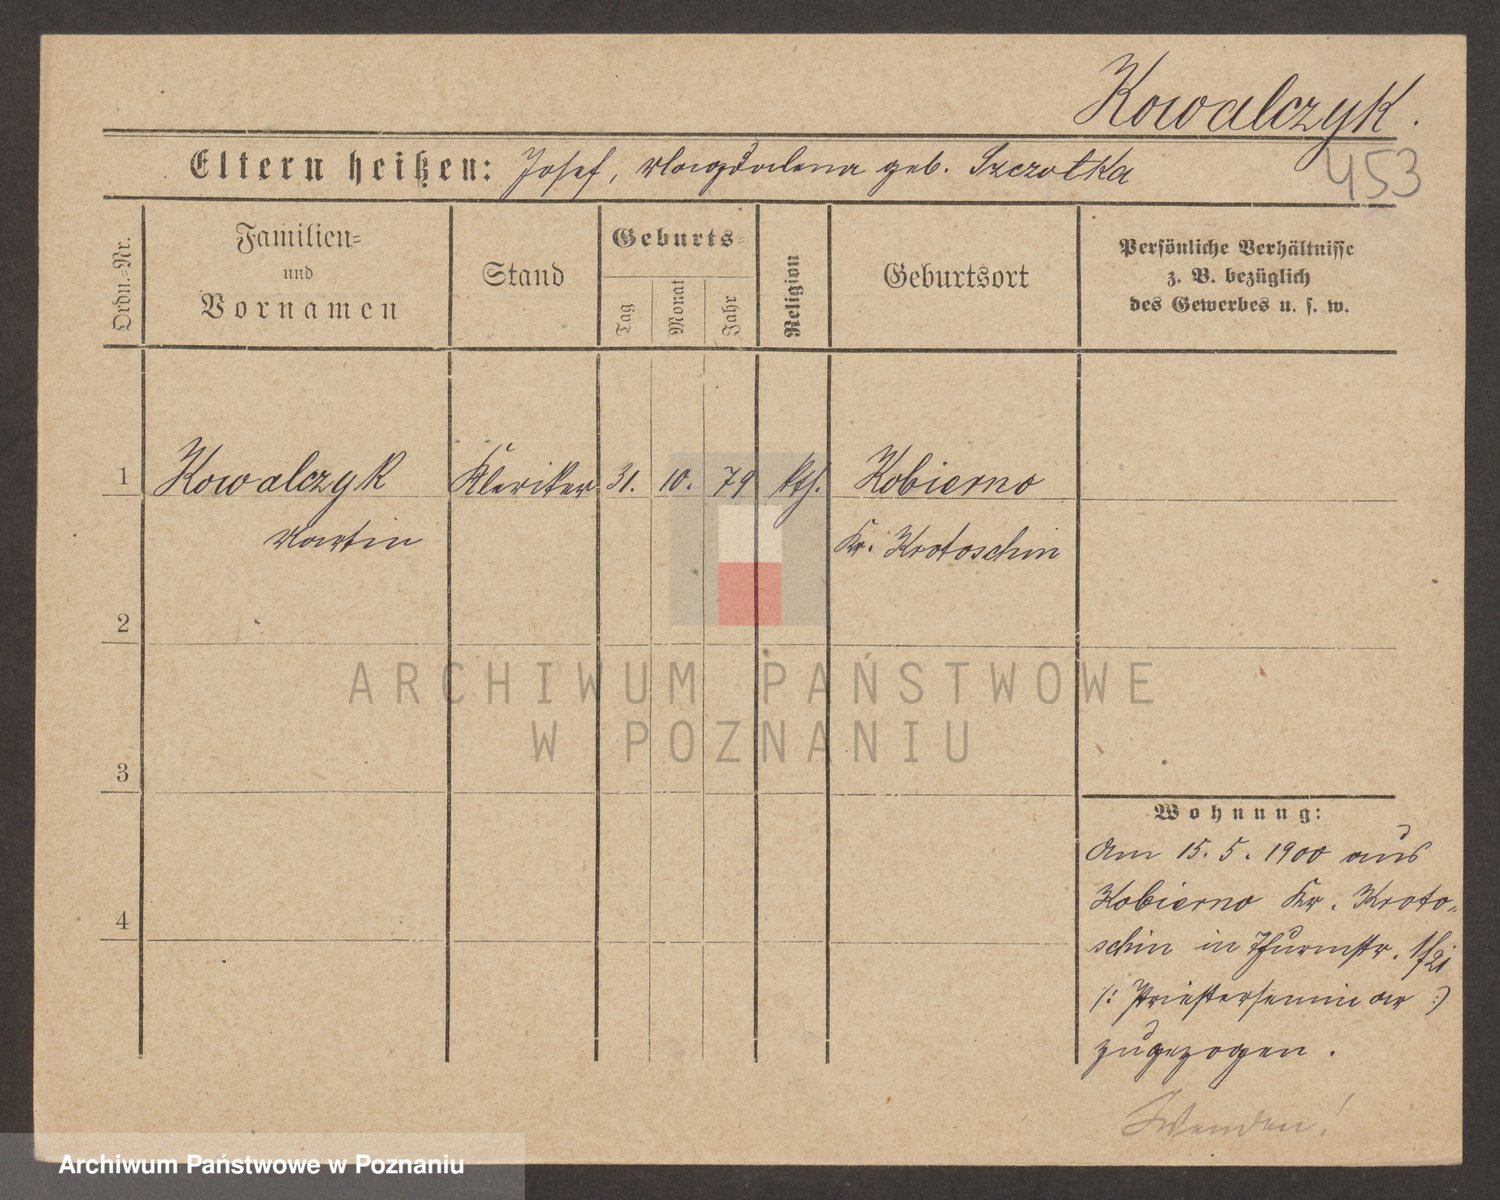 Kowalczyk.
453
Eltern heißen: Josef, Magdalena geb. Szczotka
Ordn.-Nr.
Familien-
und
Vornamen
Stand
Geburts-
Tag
Monat
Jahr
Religion
Geburtsort
Persönliche Verhältnisse
z. B. bezüglich
des Gewerbes u. s. w.
1 Kowalczyk Kleriker 31. 10. 79 kth. Kobierno
Martin Kr. Krotoschin
2
ARCHIWUM PAŃSTWOWE
W POZNANIU
3
4
Wohnung:
Am 15. 5. 1900 aus
Kobierno Kr. Kroto-
schin in Thurmstr. 1/21
/: Priesterseminar :/
zugezogen.
Wenden!
Archiwum Państwowe w Poznaniu